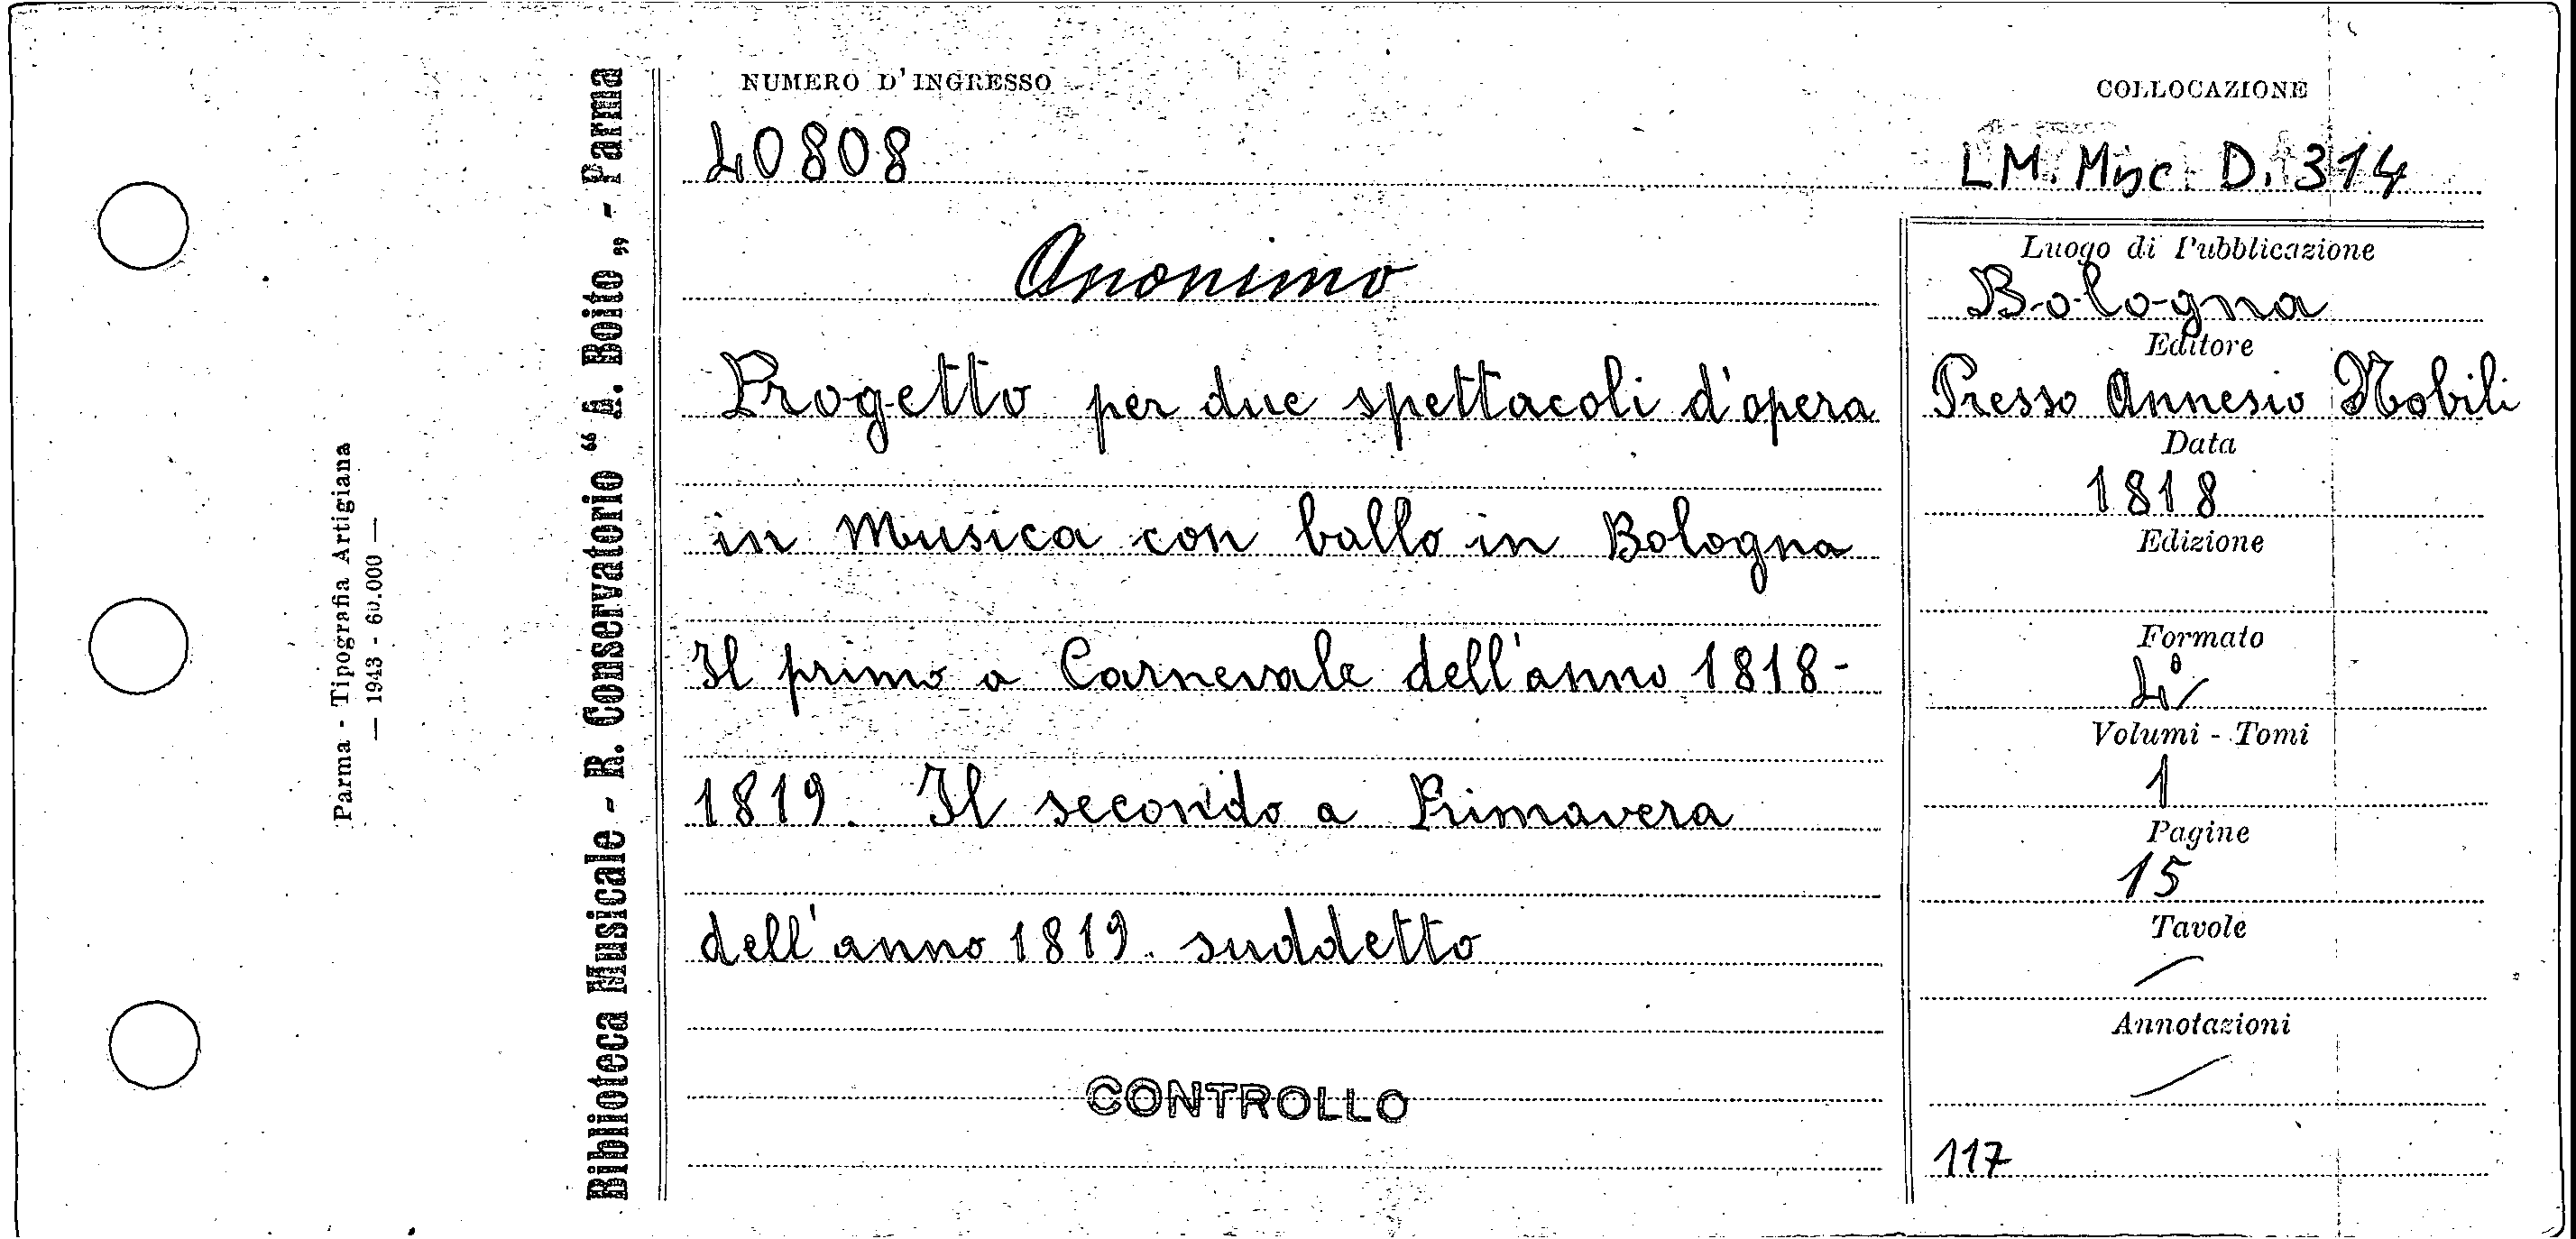 Parma - Tipografia Artigiana
— 1943 - 60.000 —
Biblioteca Musicale - R. Conservatorio “ A. Boito „ - Parma
NUMERO D'INGRESSO
40808
Anonimo
Progetto per due spettacoli d'opera
in Musica con ballo in Bologna
Il primo a Carnevale dell'anno 1818-
1819. Il secondo a Primavera
dell'anno 1819. suddetto
CONTROLLO
COLLOCAZIONE
LM. Misc. D. 314
Luogo di Pubblicazione
Bologna
Editore
Presso Annesio Nobili
Data
1818
Edizione
Formato
4°
Volumi - Tomi
1
Pagine
15
Tavole
Annotazioni
117